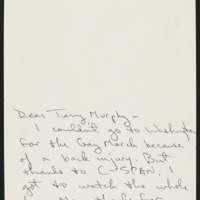 Dear Terry Murphy-
I couldn't go to Washington
for the Gay March because
of a back injury. But
thanks to C-SPAN, I
got to watch the whole